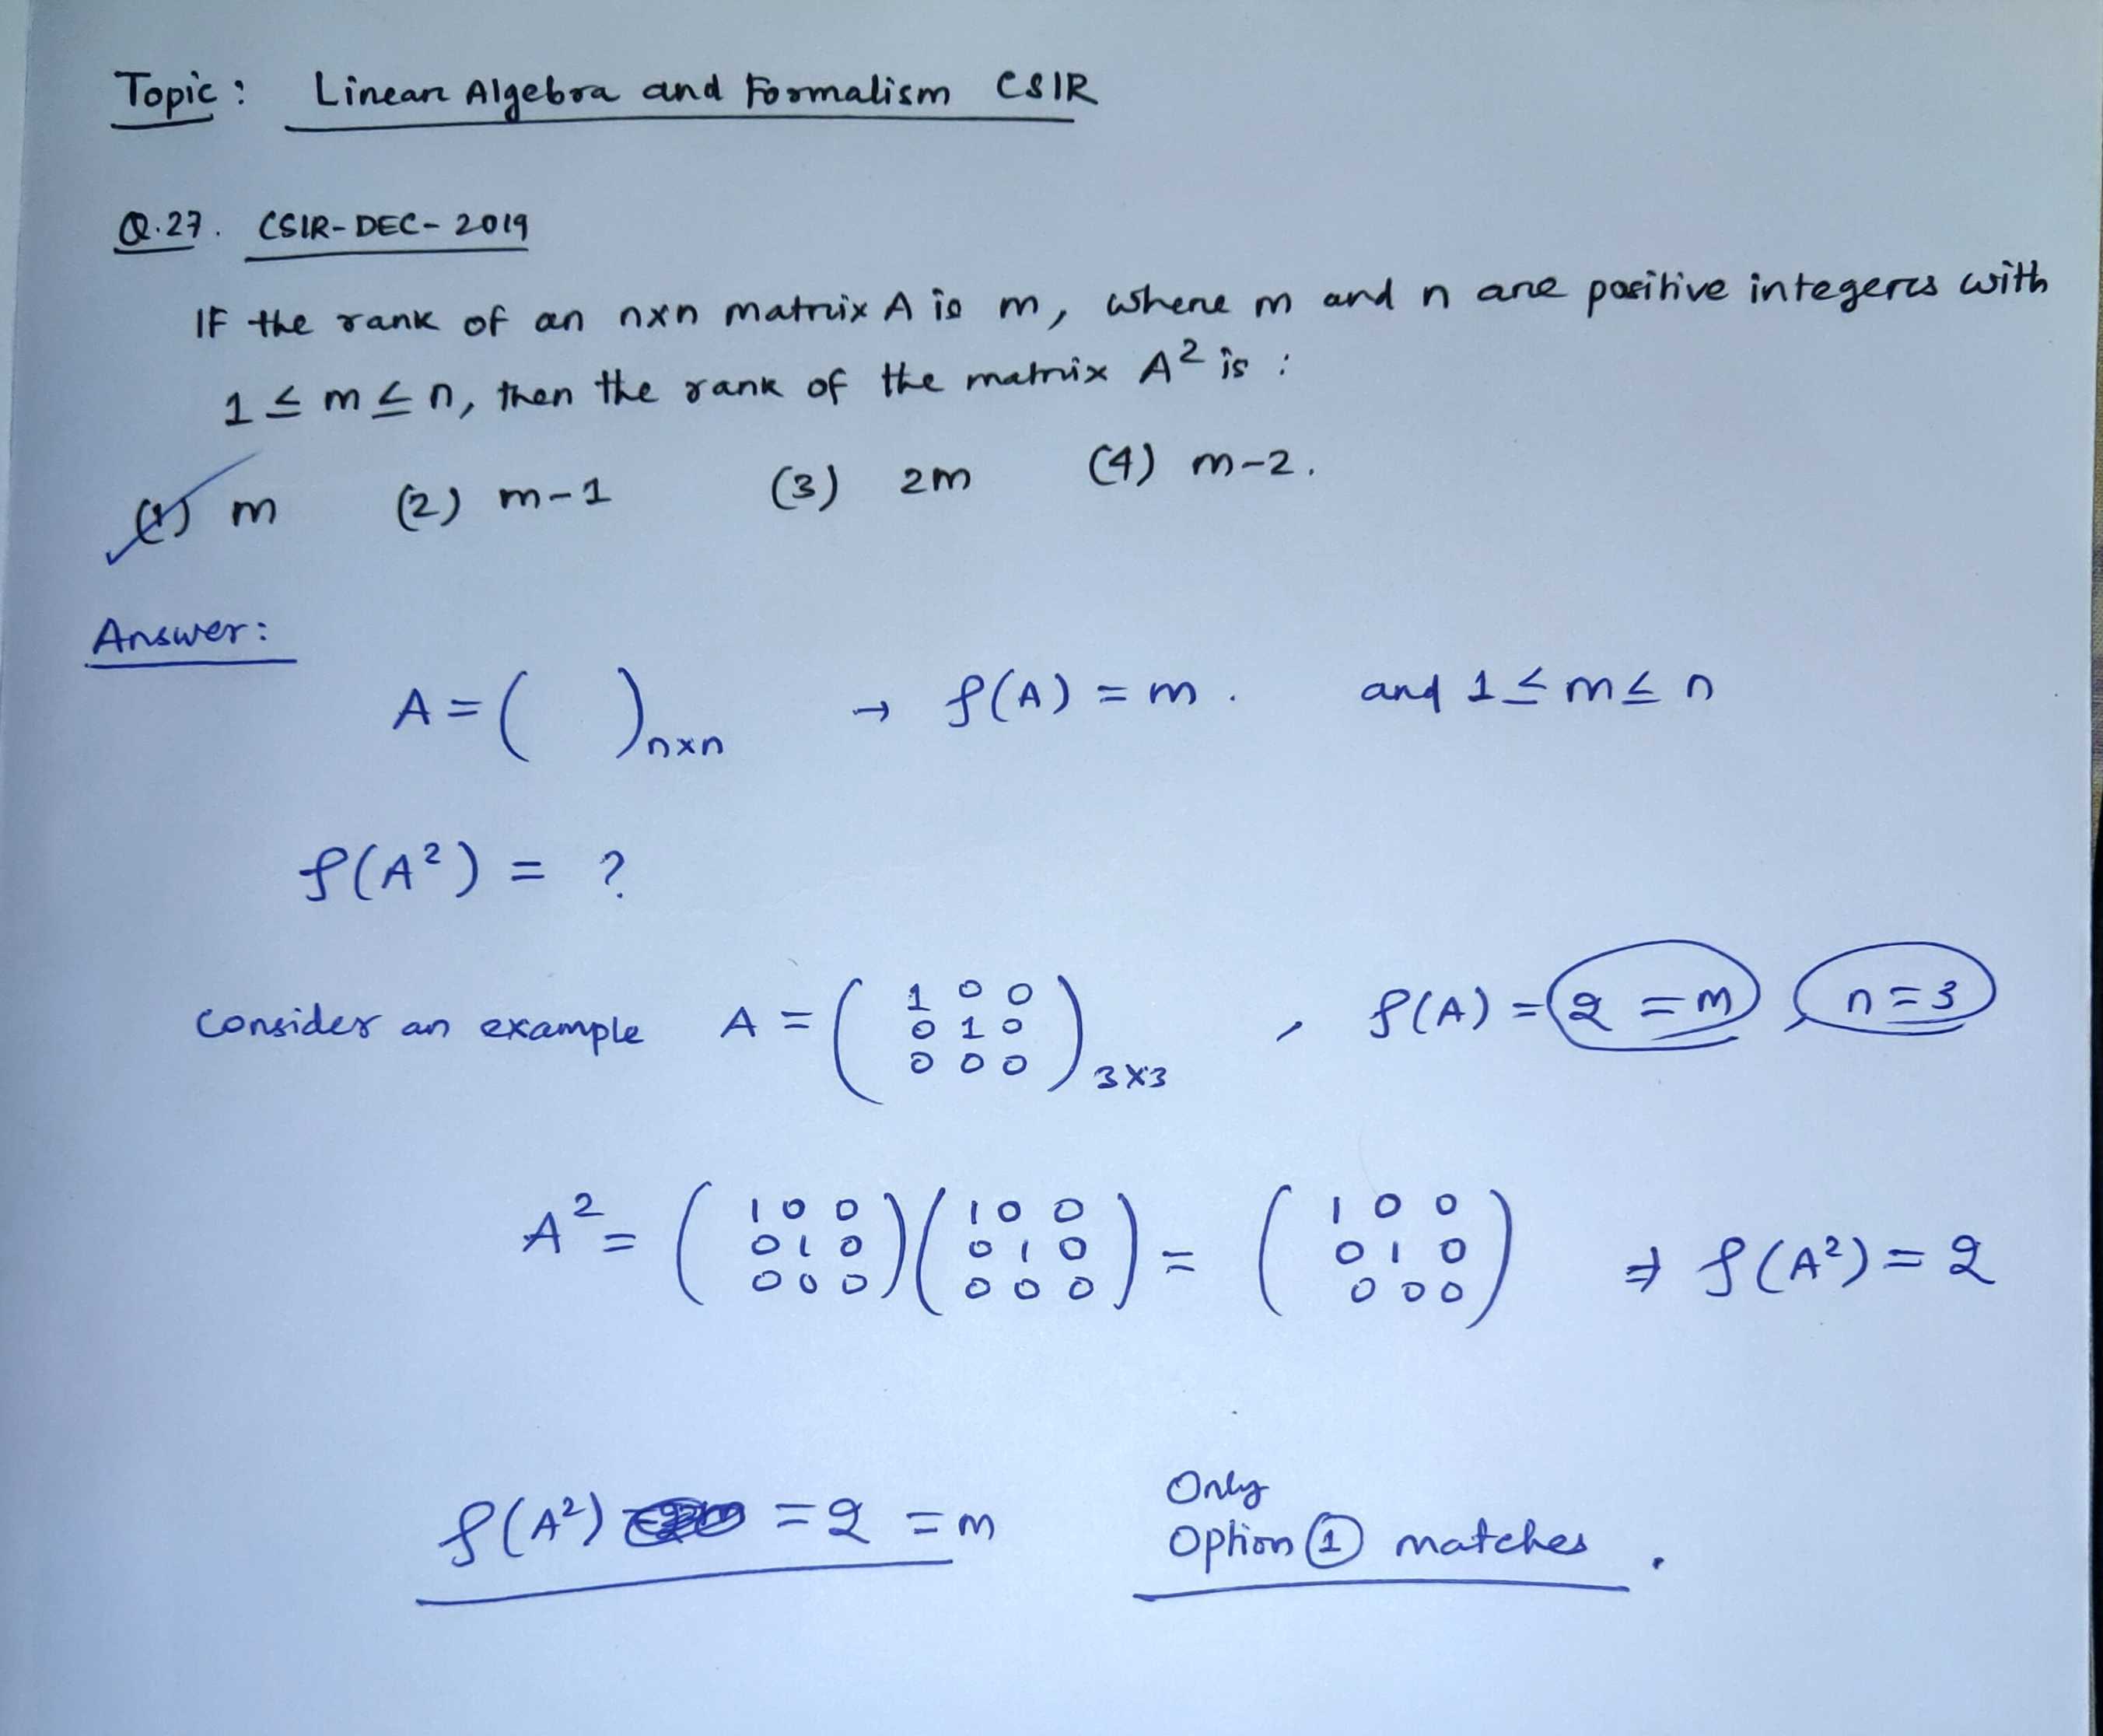 Topic: Linear Algebra and Formalism CSIR
Q.27. CSIR-DEC-2019
IF the rank of an nxn matrix A is m, where m and n are positive integers with
1 ≤ m ≤ n, then the rank of the matrix A² is :
(1) m (2) m-1 (3) 2m (4) m-2.
Answer:
A = ( )nxn → ρ(A) = m . and 1 ≤ m ≤ n
ρ(A²) = ?
Consider an example A = ( 1 0 0
0 1 0
0 0 0 )3x3 , ρ(A) = 2 = m , n = 3
A² = ( 1 0 0 ) ( 1 0 0 ) = ( 1 0 0 )
0 1 0 0 1 0 0 1 0
0 0 0 0 0 0 0 0 0 ⇒ ρ(A²) = 2
ρ(A²) = 2 = m
Only
Option ① matches .